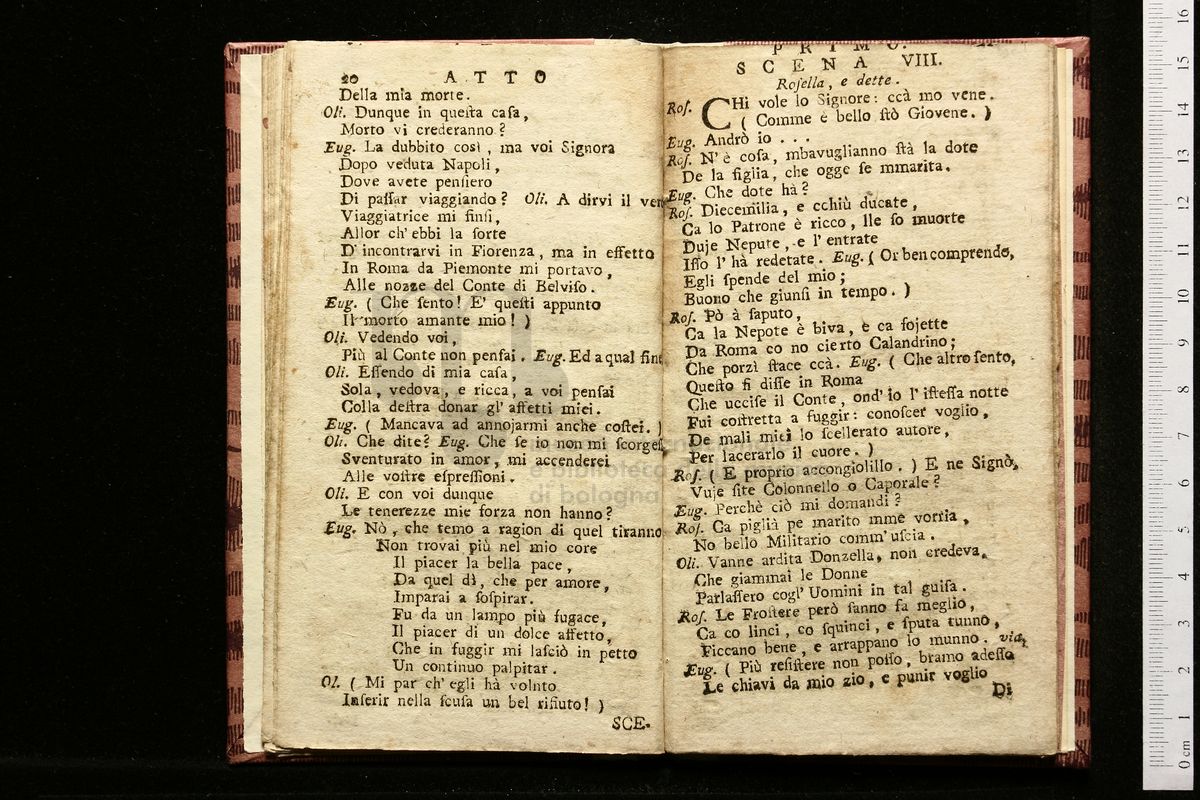 20 ATTO
Della mia morte.
Oli. Dunque in queſta caſa,
Morto vi crederanno?
Eug. La dubbito così, ma voi Signora
Dopo veduta Napoli,
Dove avete penſiero
Di paſſar viaggiando? Oli. A dirvi il vero
Viaggiatrice mi finſi,
Allor ch'ebbi la ſorte
D'incontrarvi in Fiorenza, ma in effetto
In Roma da Piemonte mi portavo,
Alle nozze del Conte di Belviſo.
Eug. (Che ſento! E' queſti appunto
Il morto amante mio!)
Oli. Vedendo voi,
Più al Conte non penſai. Eug. Ed a qual fine
Oli. Eſſendo di mia caſa,
Sola, vedova, e ricca, a voi penſai
Colla deſtra donar gl' affetti miei.
Eug. (Mancava ad annojarmi anche coſtei.)
Oli. Che dite? Eug. Che ſe io non mi ſcorgeſ
Sventurato in amor, mi accenderei
Alle voſtre eſpreſſioni.
Oli. E con voi dunque
Le tenerezze mie forza non hanno?
Eug. Nò, che temo a ragion di quel tiranno
Non trovai più nel mio core
Il piacer la bella pace,
Da quel dì, che per amore,
Imparai a ſoſpirar.
Fu da un lampo più fugace,
Il piacer di un dolce affetto,
Che in fuggir mi laſciò in petto
Un continuo palpitar.
Ol. (Mi par ch' egli hà voluto
Inſerir nella ſcuſa un bel rifiuto!)
SCE-
PRIMO.
SCENA VIII.
Roſella, e dette.
Roſ. CHi vole lo Signore: ccà mo vene.
(Comme è bello ſtò Giovene.)
Eug. Andrò io...
Roſ. N' è coſa, mbavuglianno ſtà la dote
De la figlia, che ogge ſe mmarita.
Eug. Che dote hà?
Roſ. Diecemilia, e cchiù ducate,
Ca lo Patrone è ricco, lle ſo muorte
Duje Nepute, e l' entrate
Iſſo l' hà redetate. Eug. (Or ben comprendo,
Egli ſpende del mio;
Buono che giunſi in tempo.)
Roſ. Pò à ſaputo,
Ca la Nepote è biva, e ca fojette
Da Roma co no cierto Calandrino;
Che porzì ſtace ccà. Eug. (Che altro ſento,
Queſto ſi diſſe in Roma
Che ucciſe il Conte, ond' io l' iſteſſa notte
Fui coſtretta a fuggir: conoſcer voglio,
De mali miei lo ſcellerato autore,
Per lacerarlo il cuore.)
Roſ. (E proprio accongiolillo.) E ne Signò,
Vuje ſite Colonnello o Caporale?
Eug. Perchè ciò mi domandi?
Roſ. Ca piglià pe marito mme vorria,
No bello Militario comm' uſcia.
Oli. Vanne ardita Donzella, non credeva,
Che giammai le Donne
Parlaſſero cogl' Uomini in tal guiſa.
Roſ. Le Froſtere però ſanno fa meglio,
Ca co linci, co ſquinci, e ſputa tunno,
Ficcano bene, e arrappano lo munno. via,
Eug. (Più reſiſtere non poſſo, bramo adeſſo
Le chiavi da mio zio, e punir voglio
Di